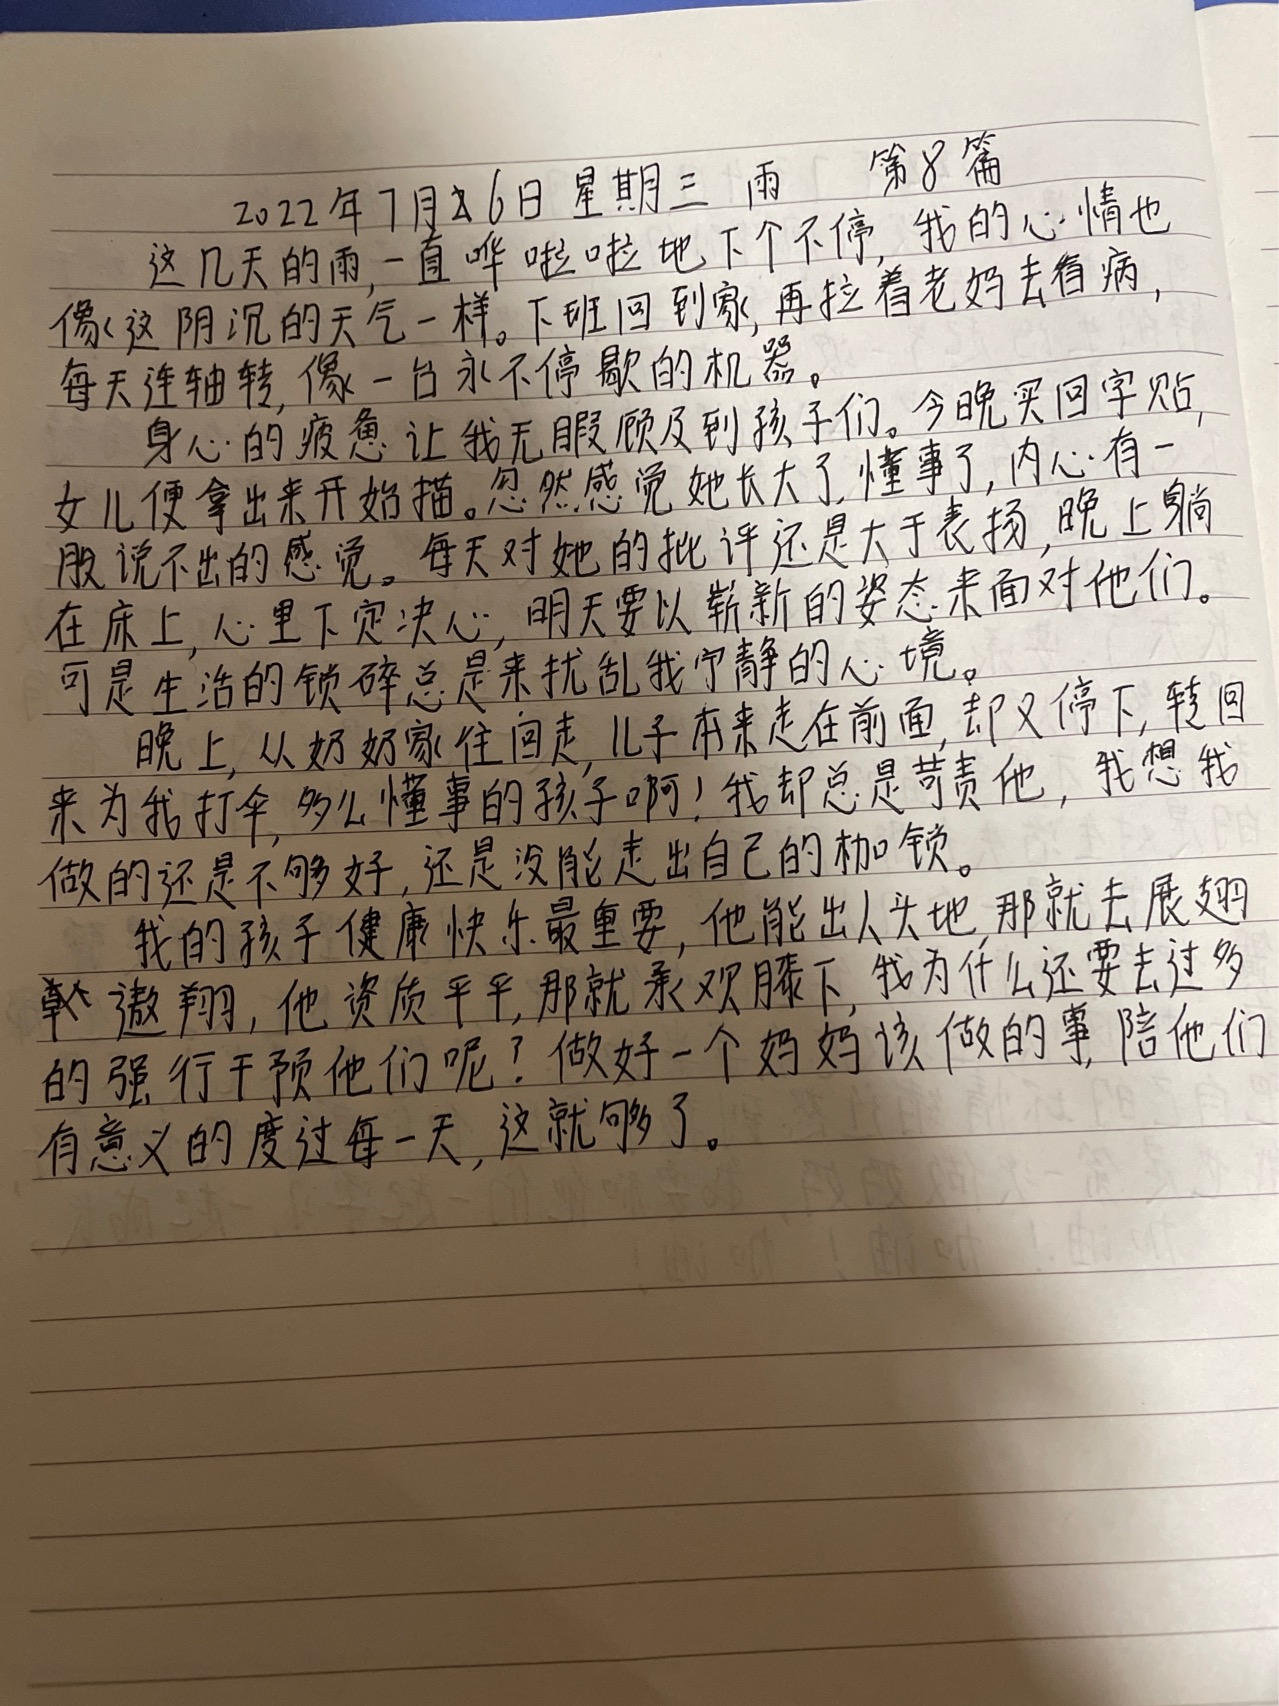 2022年7月26日 星期三 雨 第8篇
这几天的雨,一直哗啦啦地下个不停,我的心情也
像这阴沉的天气一样。下班回到家,再拉着老妈去看病,
每天连轴转,像一台永不停歇的机器。
身心的疲惫让我无暇顾及到孩子们。今晚买回字贴,
女儿便拿出来开始描。忽然感觉她长大了,懂事了,内心有一
股说不出的感觉。每天对她的批评还是大于表扬,晚上躺
在床上,心里下定决心,明天要以崭新的姿态来面对他们。
可是生活的锁碎总是来扰乱我宁静的心境。
晚上,从奶奶家住回走,儿子本来走在前面,却又停下,转回
来为我打伞,多么懂事的孩子啊!我却总是苛责他,我想我
做的还是不够好,还是没能走出自己的枷锁。
我的孩子健康快乐最重要,他能出人头地,那就去展翅
遨翔,他资质平平,那就承欢膝下,我为什么还要去过多
的强行干预他们呢?做好一个妈妈该做的事,陪他们
有意义的度过每一天,这就够了。